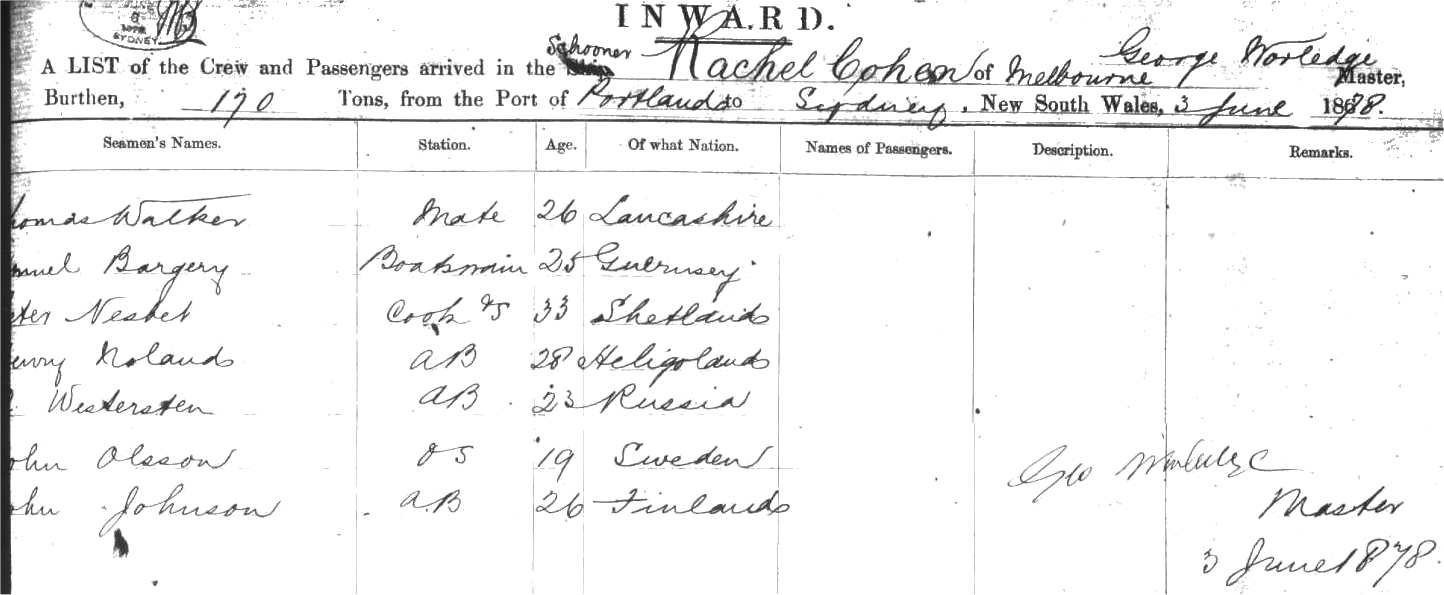 JUNE
8
1878
SYDNEY
INWARD.
Schooner
George Worledge
A LIST of the Crew and Passengers arrived in the Ship Rachel Cohen of Melbourne Master,
Burthen, 170 Tons, from the Port of Portland to Sydney, New South Wales, 3 June 1878.
Seamen's Names. Station. Age. Of what Nation. Names of Passengers. Description. Remarks.
homas Walker Mate 26 Lancashire
muel Bargery Boatswain 25 Guernsey
eter Nesbet Cook &S 33 Shetland
enry Roland AB 28 Heligoland
Westersten AB 23 Russia
ohn Olsson OS 19 Sweden
Geo Worledge
ohn Johnson AB 26 Finland
Master
3 June 1878.